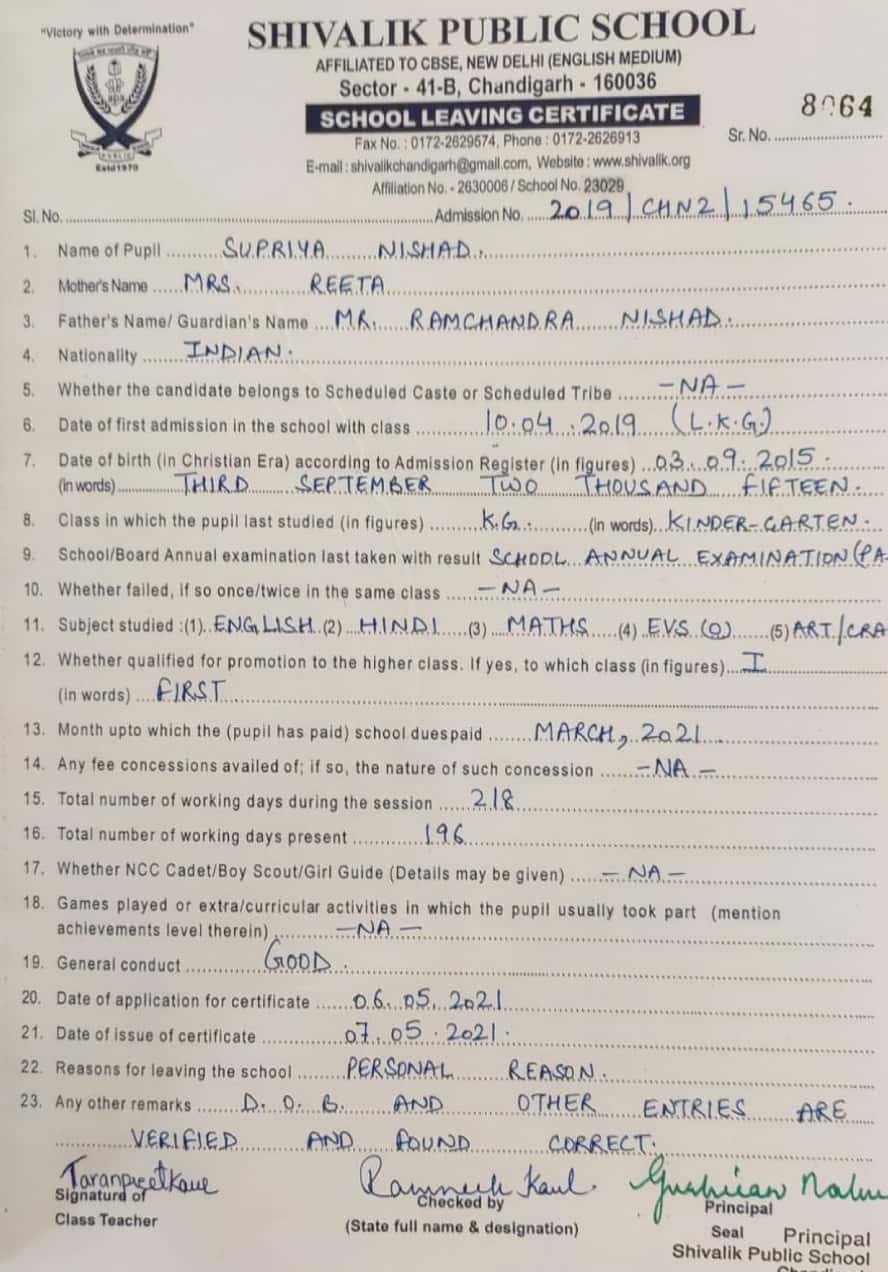 "Victory with Determination"
SHIVALIK PUBLIC SCHOOL
AFFILIATED TO CBSE, NEW DELHI (ENGLISH MEDIUM)
Sector - 41-B, Chandigarh - 160036
SCHOOL LEAVING CERTIFICATE
PUBLIC
Estd1970
Fax No. : 0172-2629574, Phone : 0172-2626913
Sr. No.
E-mail : shivalikchandigarh@gmail.com, Website : www.shivalik.org
Affiliation No. - 2630006 / School No. 23029
Sl. No. Admission No. 2019/CHN2/15465.
1. Name of Pupil SUPRIYA NISHAD.
2. Mother's Name MRS. REETA
3. Father's Name/ Guardian's Name MR. RAMCHANDRA NISHAD.
4. Nationality INDIAN.
5. Whether the candidate belongs to Scheduled Caste or Scheduled Tribe -NA-
6. Date of first admission in the school with class 10.04.2019 (L.K.G.)
7. Date of birth (in Christian Era) according to Admission Register (in figures) 03.09.2015.
(in words) THIRD SEPTEMBER TWO THOUSAND FIFTEEN.
8. Class in which the pupil last studied (in figures) K.G. (in words) KINDER-GARTEN.
9. School/Board Annual examination last taken with result SCHOOL ANNUAL EXAMINATION (PA
10. Whether failed, if so once/twice in the same class -NA-
11. Subject studied :(1) ENGLISH (2) HINDI (3) MATHS (4) EVS (O) (5) ART/CRA
12. Whether qualified for promotion to the higher class. If yes, to which class (in figures) I
(in words) FIRST
13. Month upto which the (pupil has paid) school duespaid MARCH, 2021
14. Any fee concessions availed of; if so, the nature of such concession -NA-
15. Total number of working days during the session 218
16. Total number of working days present 196
17. Whether NCC Cadet/Boy Scout/Girl Guide (Details may be given) -NA-
18. Games played or extra/curricular activities in which the pupil usually took part (mention
achievements level therein) -NA-
19. General conduct GOOD.
20. Date of application for certificate 06.05.2021
21. Date of issue of certificate 07.05.2021.
22. Reasons for leaving the school PERSONAL REASON.
23. Any other remarks D.O.B. AND OTHER ENTRIES ARE
VERIFIED AND FOUND CORRECT.
Taranpreet Kaur
Signature of
Class Teacher
Kaul.
Checked by
(State full name & designation)
Principal
Seal
Principal
Shivalik Public School